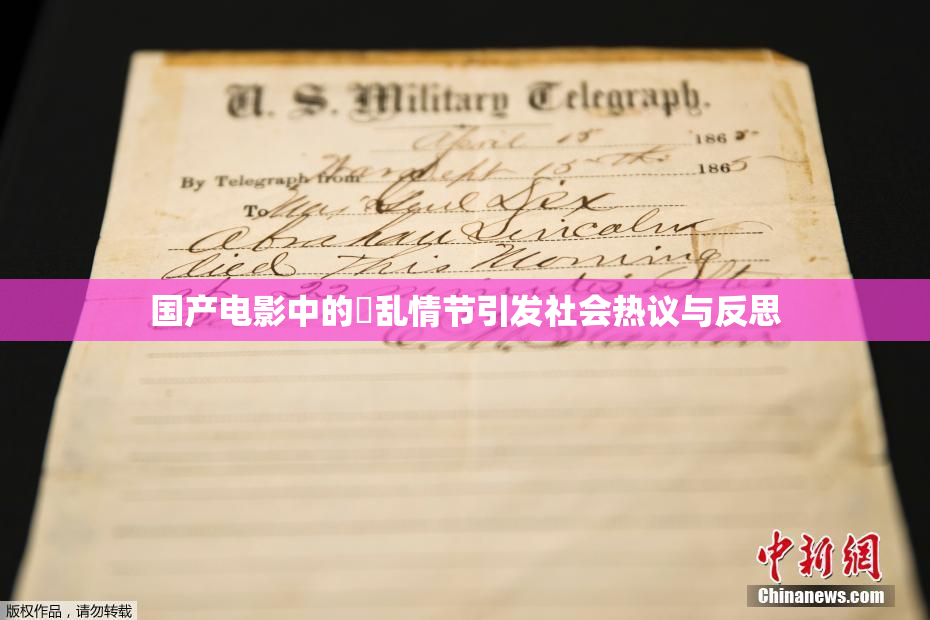 U. S. Military Telegraph.
April 15 1865
By Telegraph from War Dept 15th 1865
To Maj Genl Dix
Abraham Lincoln
died This Morning
22 minutes after
国产电影中的乱情节引发社会热议与反思
中新网
Chinanews.com
版权作品，请勿转载